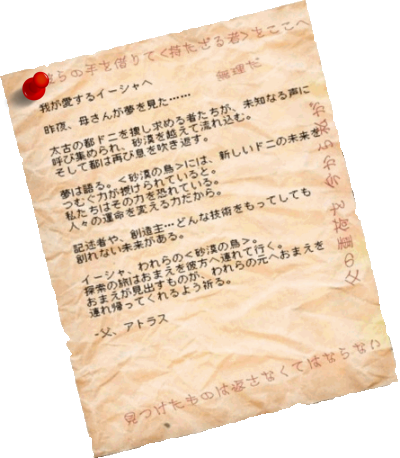 らの手を借りて<持たざる者>をここへ
無理だ
我が愛するイーシャへ
昨夜、母さんが夢を見た……
太古の都ドニを捜し求める者たちが、未知なる声に
呼び集められ、砂漠を越えて流れ込む。
そして都は再び息を吹き返す。
夢は語る。<砂漠の鳥>には、新しいドニの未来を
つむぐ力が授けられていると。
私たちはその力を恐れている。
人々の運命を変える力だから。
記述者や、創造主…どんな技術をもってしても
創れない未来がある。
イーシャ、われらの<砂漠の鳥>。
探索の旅はおまえを彼方へ連れて行く。
おまえが見出すものが、われらの元へおまえを
連れ帰ってくれるよう祈る。
-父、アトラス
見つけたものは返さなくてはならない